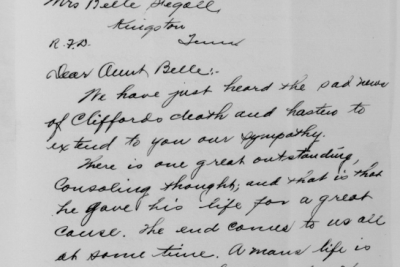 Mrs Belle Segall,
Kingston
R.F.D. Tenn
Dear Aunt Belle:-
We have just heard the sad news
of Cliffords death and hasten to
extend to you our sympathy.
There is one great outstanding,
consoling thought, and that is that
he gave his life for a great
cause. The end comes to us all
at some time. A mans life is